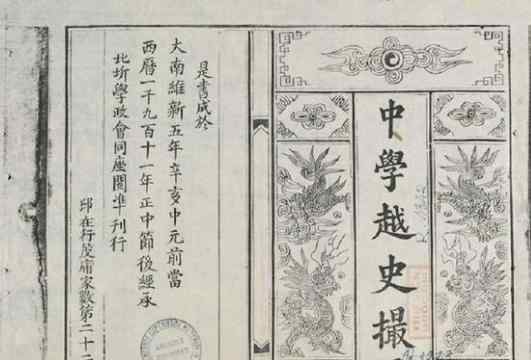 中學越史撮
是書成於
大南維新五年辛亥中元前當
西曆一千九百十一年正中節後經承
北圻學政會同座閱準刊行
邱在行茂庙家數第二十二